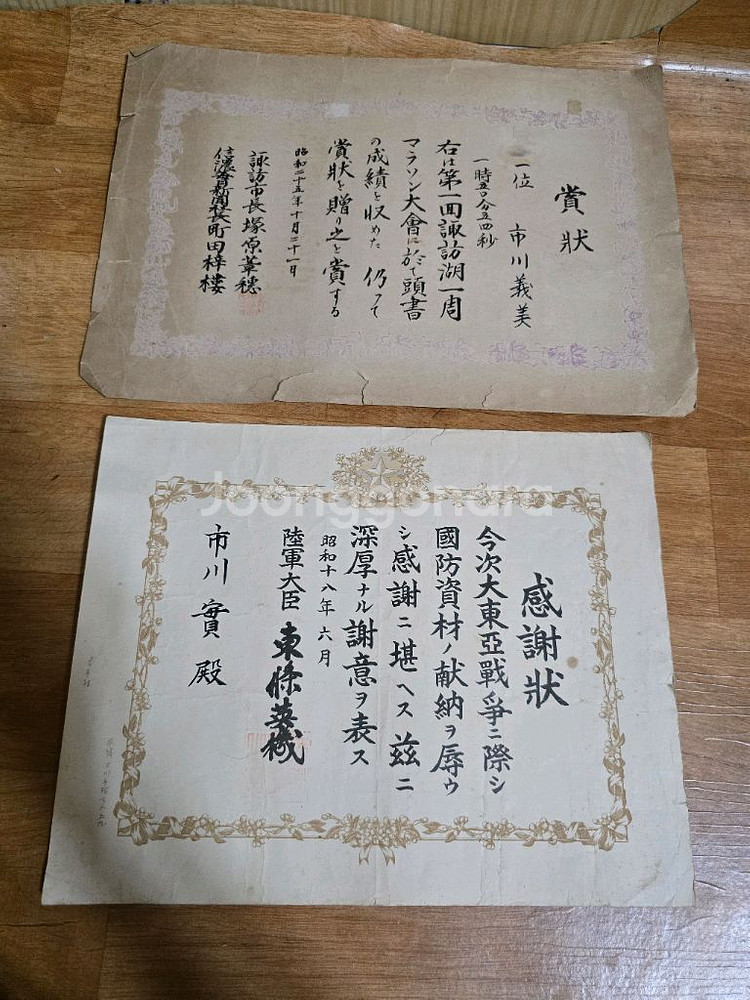 賞狀
一位 市川義美
一時五〇分五四秒
右は第一回諏訪湖一周
マラソン大會に於て頭書
の成績を収めた 仍つて
賞狀を贈り之を賞する
昭和二十五年十月二十一日
諏訪市長塚原葦穂
信濃每日新聞社長町田梓樓
Joonggonara
感謝狀
今次大東亞戰爭ニ際シ
國防資材ノ献納ヲ辱ウ
シ感謝ニ堪ヘス茲ニ
深厚ナル謝意ヲ表ス
昭和十八年六月
陸軍大臣 東條英機
市川實殿